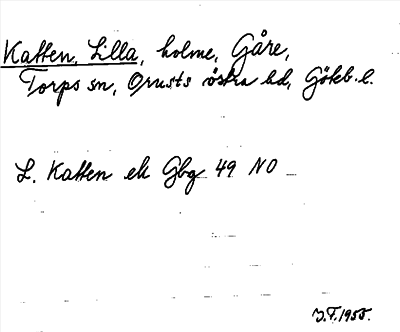 Katten, Lilla, holme, Gåre,
Torps sn, Orusts östra hd, Göteb. l.
L. Katten ek Gbg 49 NO
J.F. 1958.